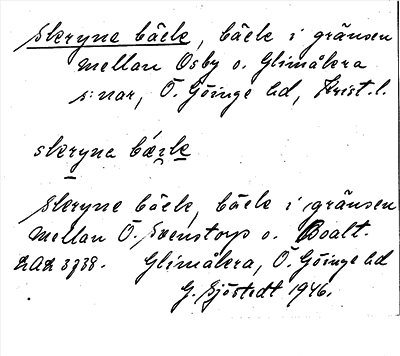 Skryne bäck, bäck i gränsen
mellan Osby o. Glimåkra
s:nar, Ö. Göinge hd, Krist. l.
skryna bærk
Skryne bäck, bäck i gränsen
mellan Ö. Svenstorp o. Boalt.
Glimåkra, Ö. Göinge hd
G. Sjöstedt 1946.